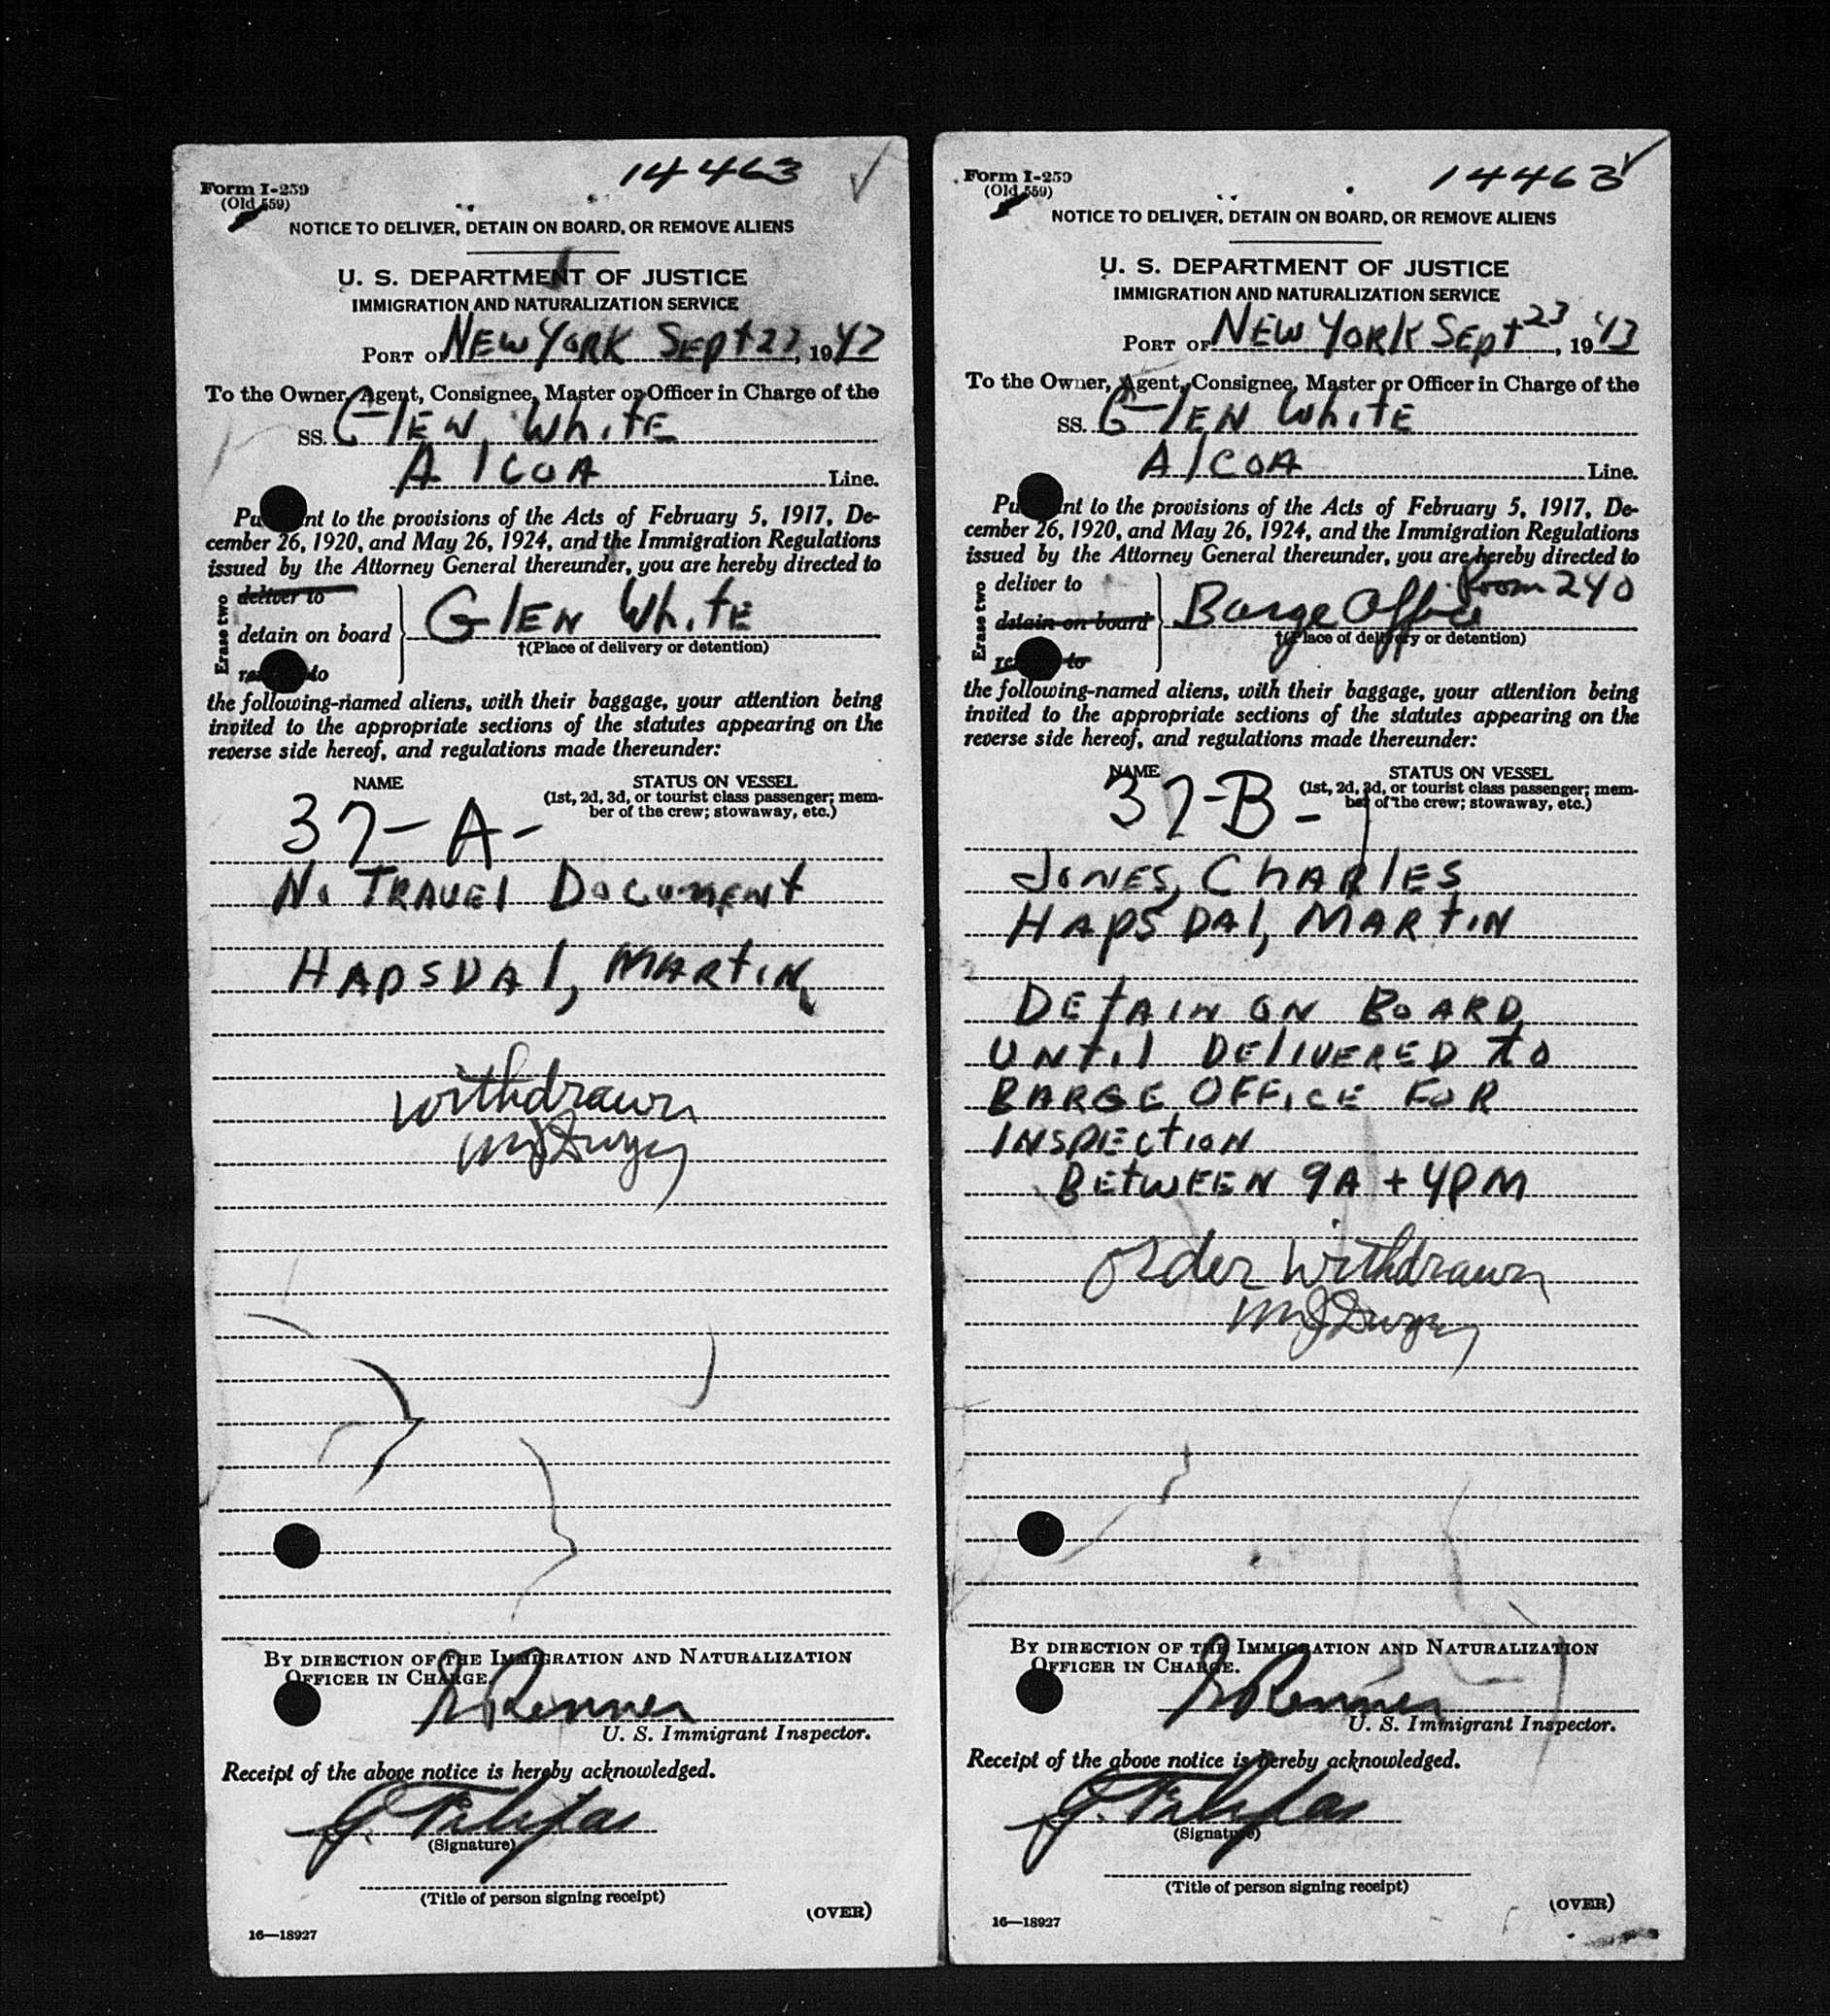 14463 ✓
Form I-259
(Old 559)
NOTICE TO DELIVER, DETAIN ON BOARD, OR REMOVE ALIENS
U. S. DEPARTMENT OF JUSTICE
IMMIGRATION AND NATURALIZATION SERVICE
PORT OF NEW YORK Sept, 19
To the Owner, Agent, Consignee, Master or Officer in Charge of the
SS. GlEN White
AlcoA Line.
Pu nt to the provisions of the Acts of February 5, 1917, De-
cember 26, 1920, and May 26, 1924, and the Immigration Regulations
issued by the Attorney General thereunder, you are hereby directed to
Erase two
deliver to
detain on board GlEN White
to
†(Place of delivery or detention)
the following-named aliens, with their baggage, your attention being
invited to the appropriate sections of the statutes appearing on the
reverse side hereof, and regulations made thereunder:
NAME STATUS ON VESSEL
(1st, 2d, 3d, or tourist class passenger; mem-
ber of the crew; stowaway, etc.)
37-A-
No TRAVEl DocumENt
HApSDAl, MARtIN
Withdrawn
BY DIRECTION OF THE IMMIGRATION AND NATURALIZATION
OFFICER IN CHARGE.
Renner
U. S. Immigrant Inspector.
Receipt of the above notice is hereby acknowledged.
(Signature)
(Title of person signing receipt)
(OVER)
16—18927
14463 ✓
Form I-259
(Old 559)
NOTICE TO DELIVER, DETAIN ON BOARD, OR REMOVE ALIENS
U. S. DEPARTMENT OF JUSTICE
IMMIGRATION AND NATURALIZATION SERVICE
PORT OF NEW YORK Sept 23, 19
To the Owner, Agent, Consignee, Master or Officer in Charge of the
SS. GlEN WhitE
AlCOA Line.
Pu nt to the provisions of the Acts of February 5, 1917, De-
cember 26, 1920, and May 26, 1924, and the Immigration Regulations
issued by the Attorney General thereunder, you are hereby directed to
Erase two
deliver to Room 240
detain on board Barge Office
to
†(Place of delivery or detention)
the following-named aliens, with their baggage, your attention being
invited to the appropriate sections of the statutes appearing on the
reverse side hereof, and regulations made thereunder:
NAME STATUS ON VESSEL
(1st, 2d, 3d, or tourist class passenger; mem-
ber of the crew; stowaway, etc.)
37-B-
JoNES, ChARlES
HApSDAl, MARtIN
DEtAIN ON BoARD
UNtil DElIVERED to
BARGE OFFICE FoR
INSpEctION
BEtWEEN 9A + 4PM
Order Withdrawn
BY DIRECTION OF THE IMMIGRATION AND NATURALIZATION
OFFICER IN CHARGE.
Renner
U. S. Immigrant Inspector.
Receipt of the above notice is hereby acknowledged.
(Signature)
(Title of person signing receipt)
(OVER)
16—18927